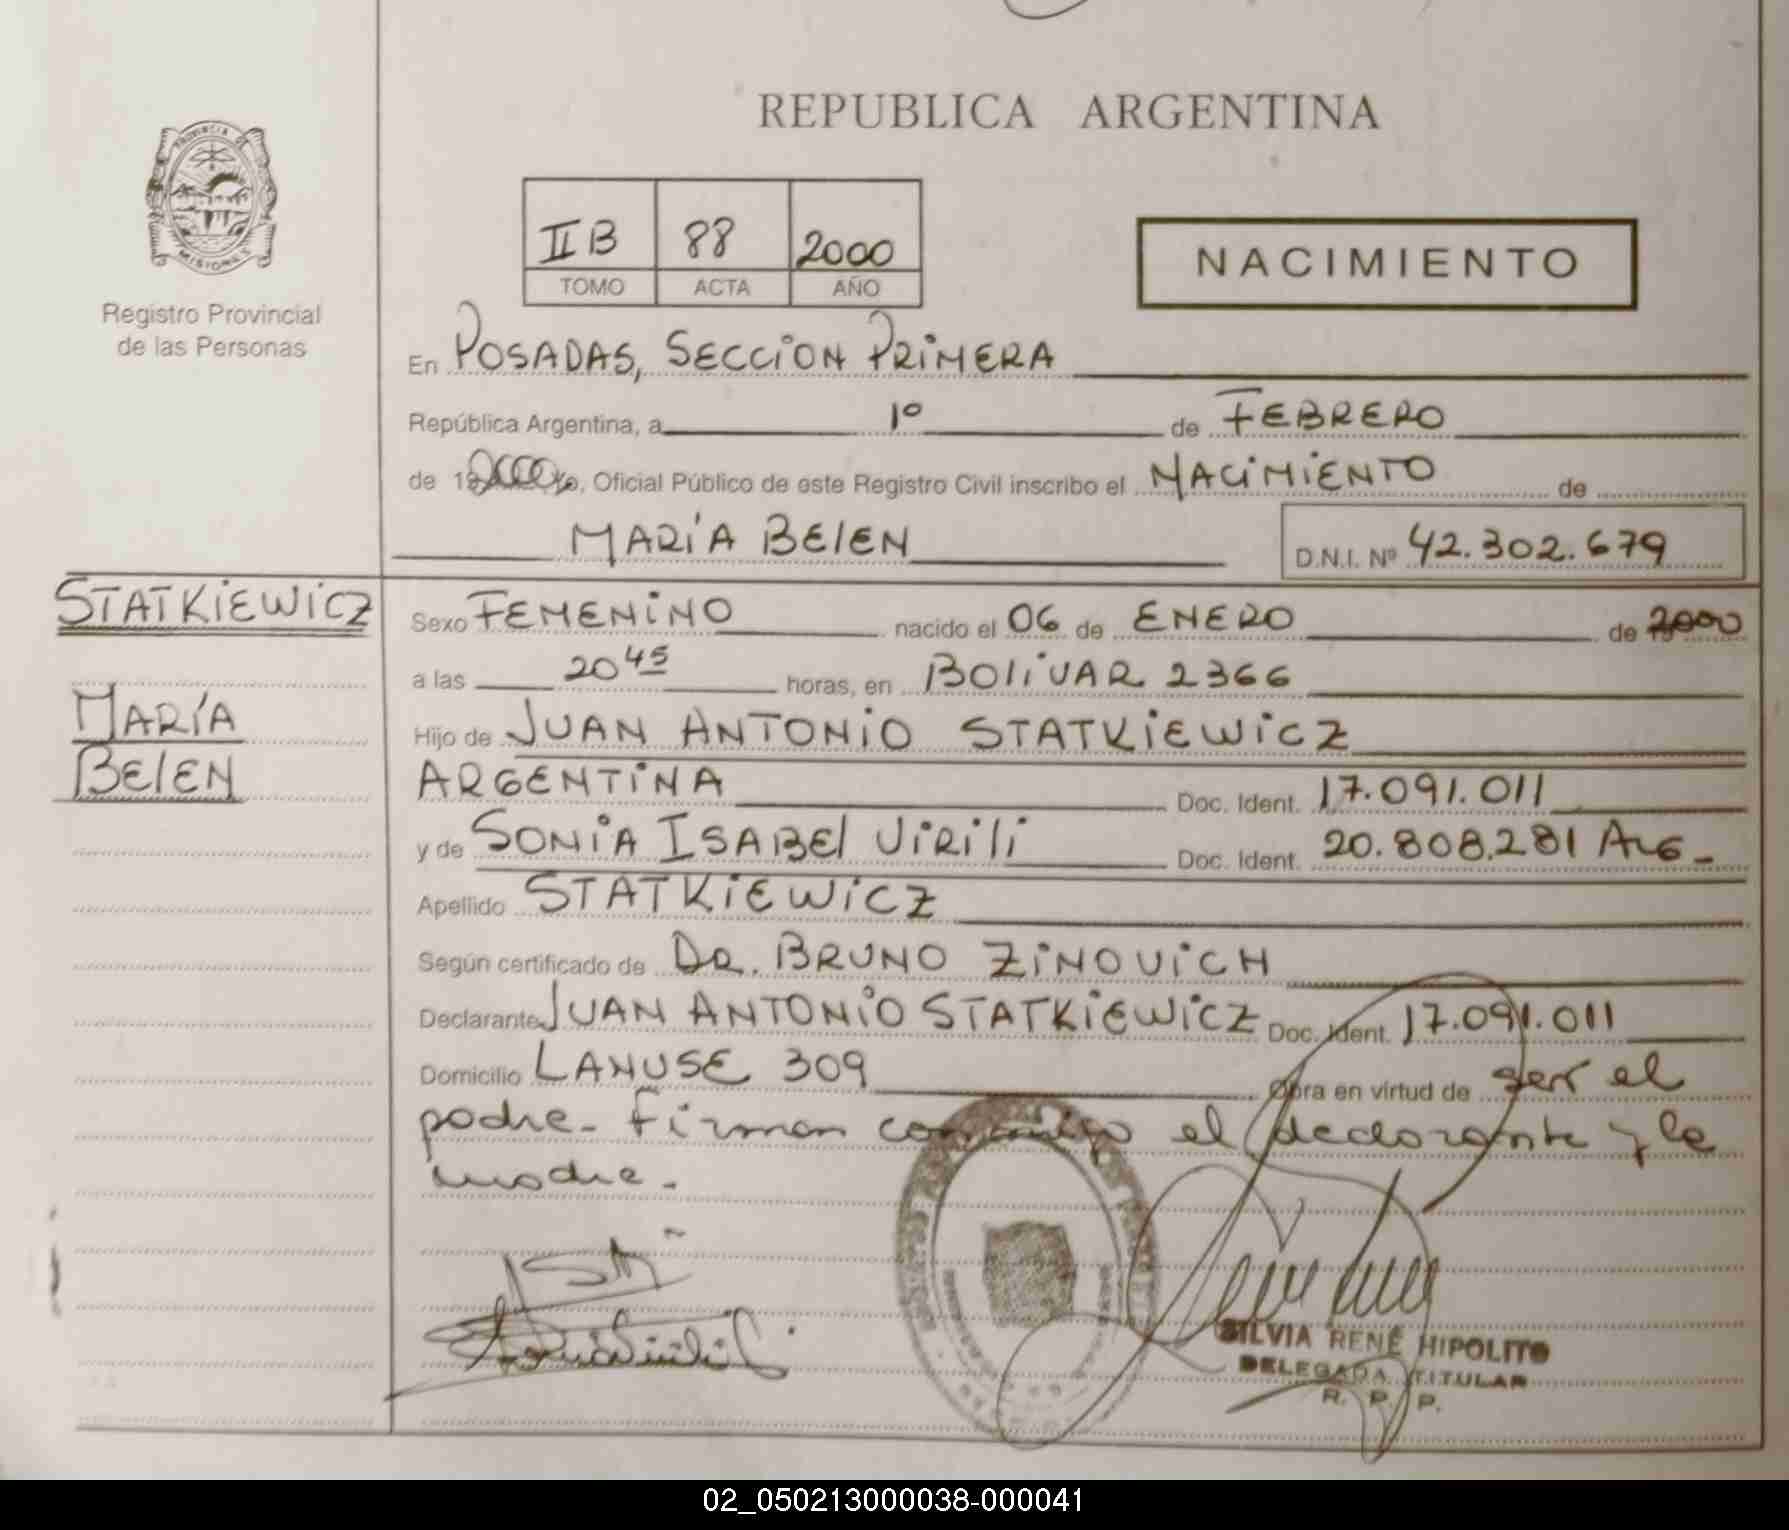 REPUBLICA ARGENTINA
PROVINCIA DE
MISIONES
Registro Provincial
de las Personas
II B 88 2000
TOMO ACTA AÑO
NACIMIENTO
En POSADAS, SECCION PRIMERA
República Argentina, a 1º de FEBRERO
de 2000 Yo, Oficial Público de este Registro Civil inscribo el NACIMIENTO de
MARÍA BELEN D.N.I. Nº 42.302.679
STATKIEWICZ
MARÍA
BELEN
Sexo FEMENINO nacido el 06 de ENERO de 2000
a las 20 45 horas, en BOLIVAR 2366
Hijo de JUAN ANTONIO STATKIEWICZ
ARGENTINA Doc. Ident. 17.091.011
y de SONIA ISABEL VIRILI Doc. Ident. 20.808.281 ARG.
Apellido STATKIEWICZ
Según certificado de DR. BRUNO ZINOVICH
Declarante JUAN ANTONIO STATKIEWICZ Doc. Ident. 17.091.011
Domicilio LANUSE 309 Obra en virtud de ser el
padre. Firman conmigo el declarante y la
madre.
SILVIA RENÉ HIPOLITO
DELEGADA TITULAR
R. P. P.
02_050213000038-000041